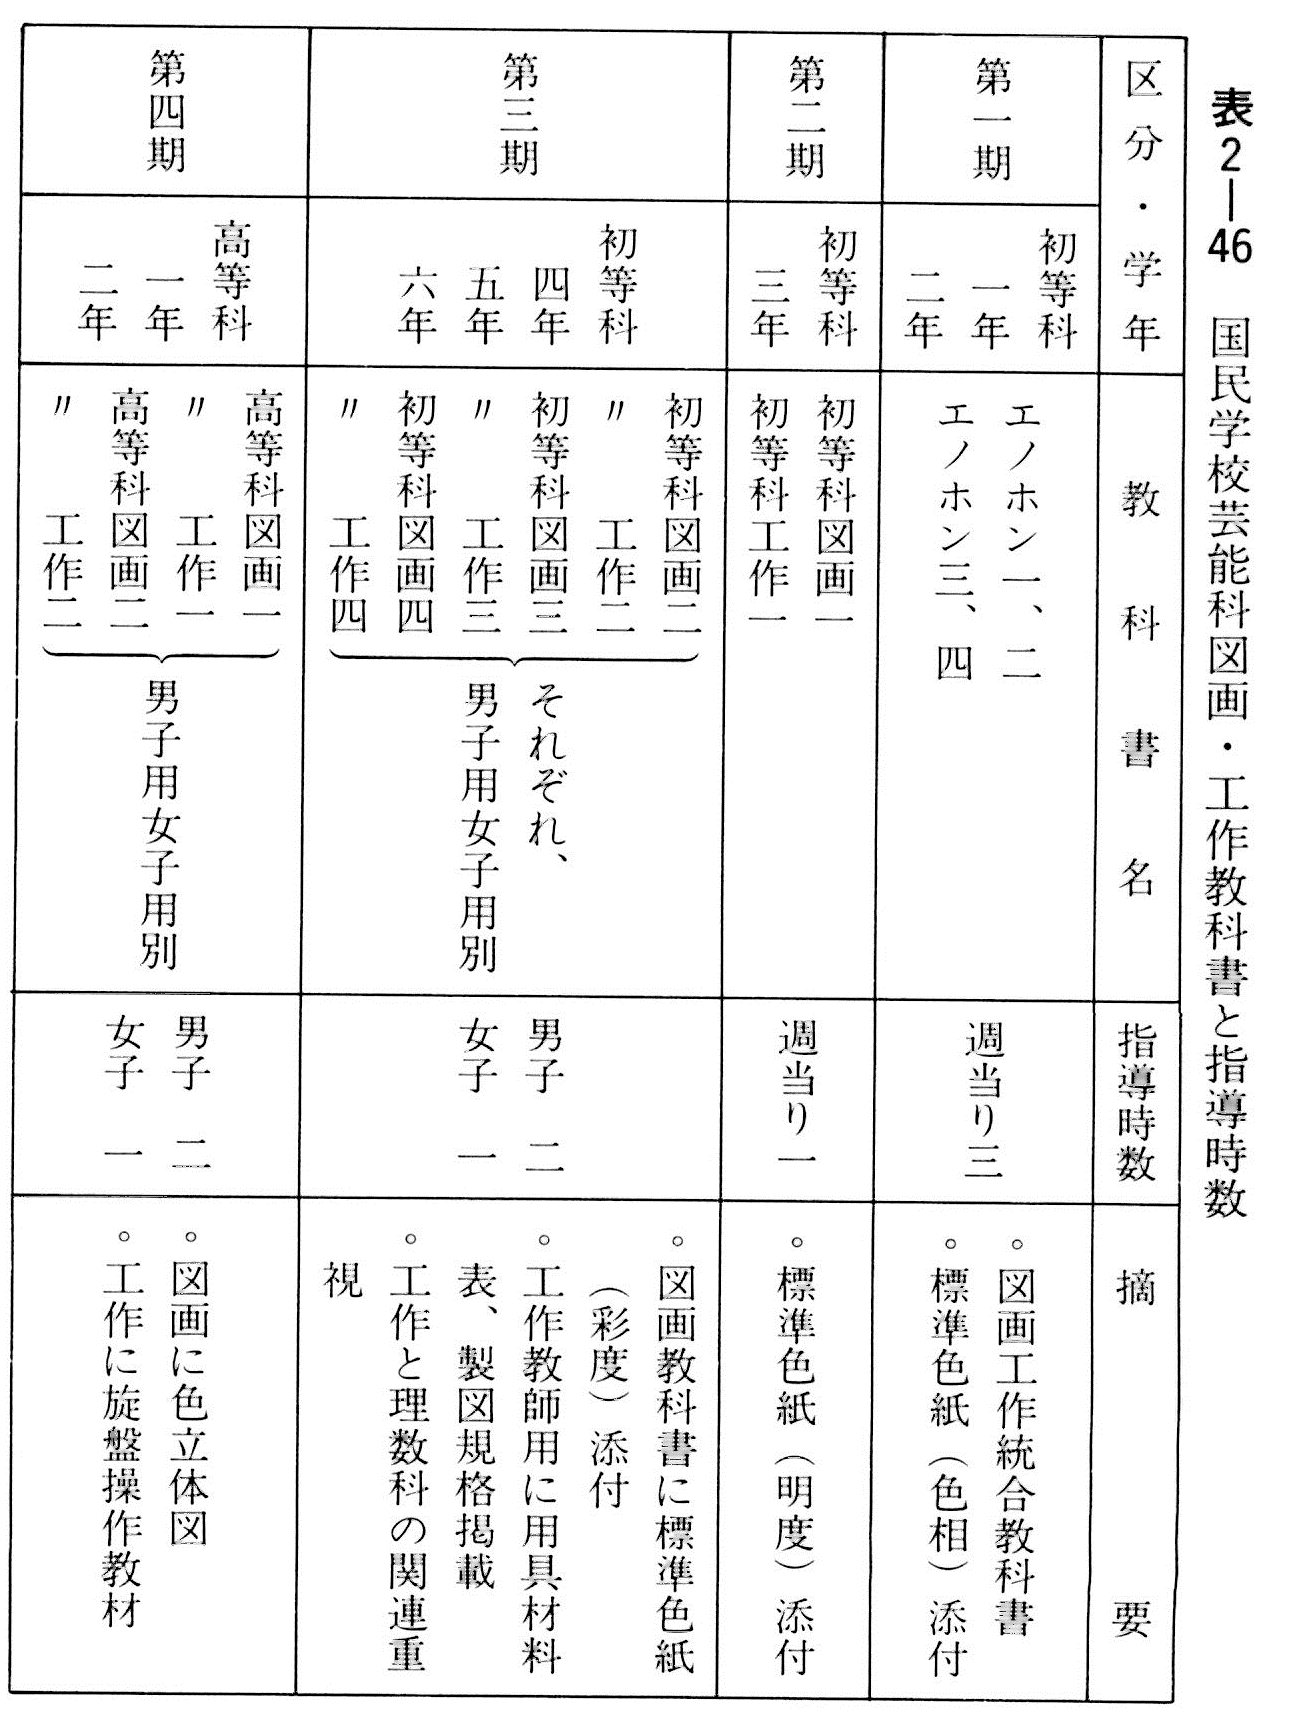 表2―46　国民学校芸能科図画・工作教科書と指導時数
区分・学年
教科書名
指導時数
摘要
第一期
初等科
一年
二年
エノホン一、二
エノホン三、四
週当り三
。図画工作統合教科書
。標準色紙（色相）添付
第二期
初等科
三年
初等科図画一
初等科工作一
週当り一
。標準色紙（明度）添付
第三期
初等科
四年
五年
六年
初等科図画二
〃　工作二
初等科図画三
〃　工作三
初等科図画四
〃　工作四
それぞれ、
男子用女子用別
男子　二
女子　一
。図画教科書に標準色紙
（彩度）添付
。工作教師用に用具材料
表、製図規格掲載
。工作と理数科の関連重
視
第四期
高等科
一年
二年
高等科図画一
〃　工作一
高等科図画二
〃　工作二
男子用女子用別
男子　二
女子　一
。図画に色立体図
。工作に旋盤操作教材